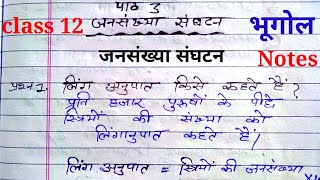 पाठ 3
class 12 जनसंख्या संघटन भूगोल
जनसंख्या संघटन Notes
प्रश्न 1. लिंग अनुपात किसे कहते हैं?
प्रति हजार पुरुषों के पीछे
स्त्रियों की संख्या को
लिंगानुपात कहते हैं।
लिंग अनुपात = स्त्रियों की जनसंख्या